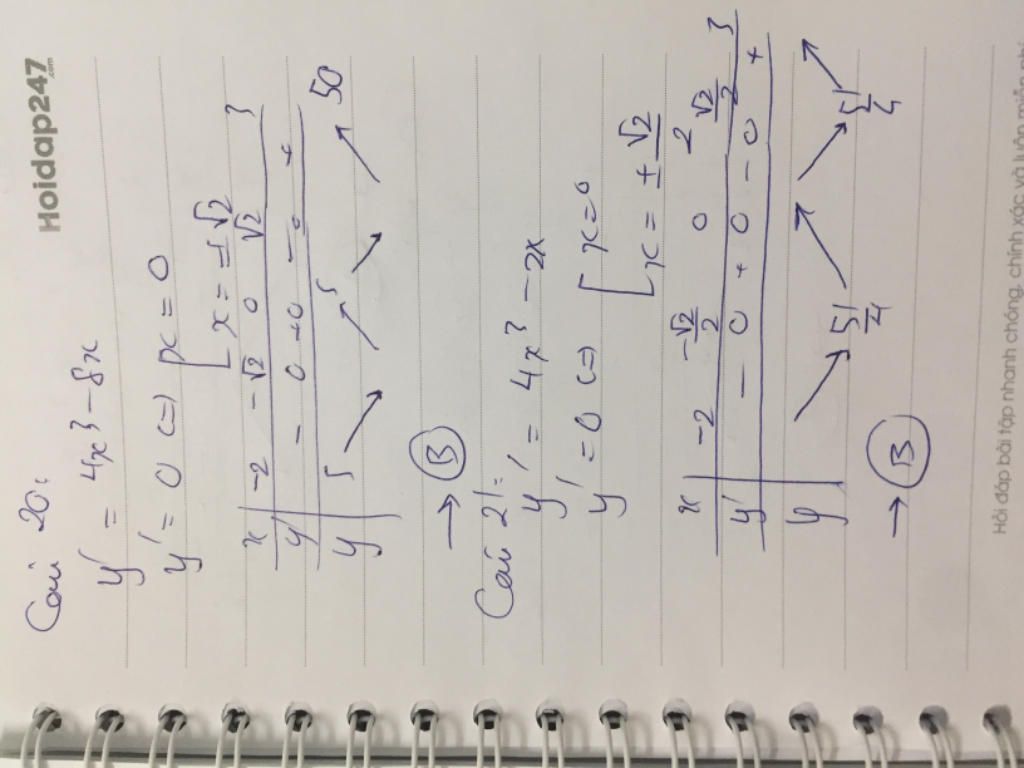 Hoidap247
.com
Câu 20:
y' = 4x³ - 8x
y' = 0 <=> [ x = 0
[ x = ±√2
x | -2 -√2 0 √2 3
y' | - 0 +0 - 0 +
y | 5 5 50
→ B
Câu 21:
y' = 4x³ - 2x
y' = 0 <=> [ x = 0
[ x = ± √2/2
x | -2 -√2/2 0 √2/2 3
y' | - 0 + 0 - 0 +
y | 51/4 51/4
→ B
Hỏi đáp bài tập nhanh chóng, chính xác và luôn miễn phí